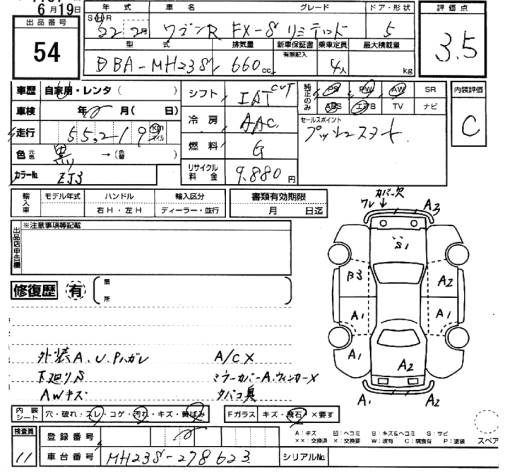 6月19日
出品番号
54
年式 車名 グレード ドア・形状
S H R
22 2月 ワゴンR FX-S リミテッド 5
型式 排気量 新車保証書 乗車定員 最大積載量
有無記入
DBA-MH23S 660cc 4人 kg
評価点
3.5
車歴 自家用・レンタ( )
車検 年 月( 日)
走行 55,219 Km マイル
色 元色 黒 →( 替)
カラーNo. ZJ3
シフト IAT CVT
冷房 AAC
燃料 G
リサイクル料金 9.880円
純正のみ PS PW AW SR
ABS エアB TV ナビ
セールスポイント
プッシュスタート
内装評価
C
輸入車 モデル年式 ハンドル 輸入区分
右H・左H ディーラー・並行
書類有効期限
月 日迄
出品店申告欄
※注意事項等記載
修復歴 有 箇所
外装A.U.Pハガレ A/C×
下廻りS ミラーカバーA.ウィンカー×
AWキズ タバコ臭
カバー欠
ワレ A3
S1
B3 A2
A1 A1
A2
A1 A2
内装シート 穴・破れ・スレ・コゲ・汚れ・キズ・黄ばみ
Fガラス キズ・飛石 ×要す
検査員
11
登録番号
車台番号 MH23S-278623 シリアルNo.
A:キズ B:ヘコミ S:サビ
××:交換済 ×:交換要 W:波有 C:腐食有 P:塗装
スペア